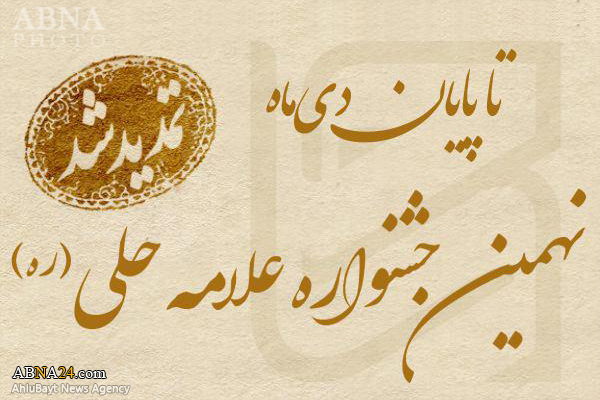 ABNA
PHOTO
تا پایان دی‌ماه
تمدید شد
نهمین جشنواره علامه حلی (ره)
ABNA24.com
AhlulBayt News Agency